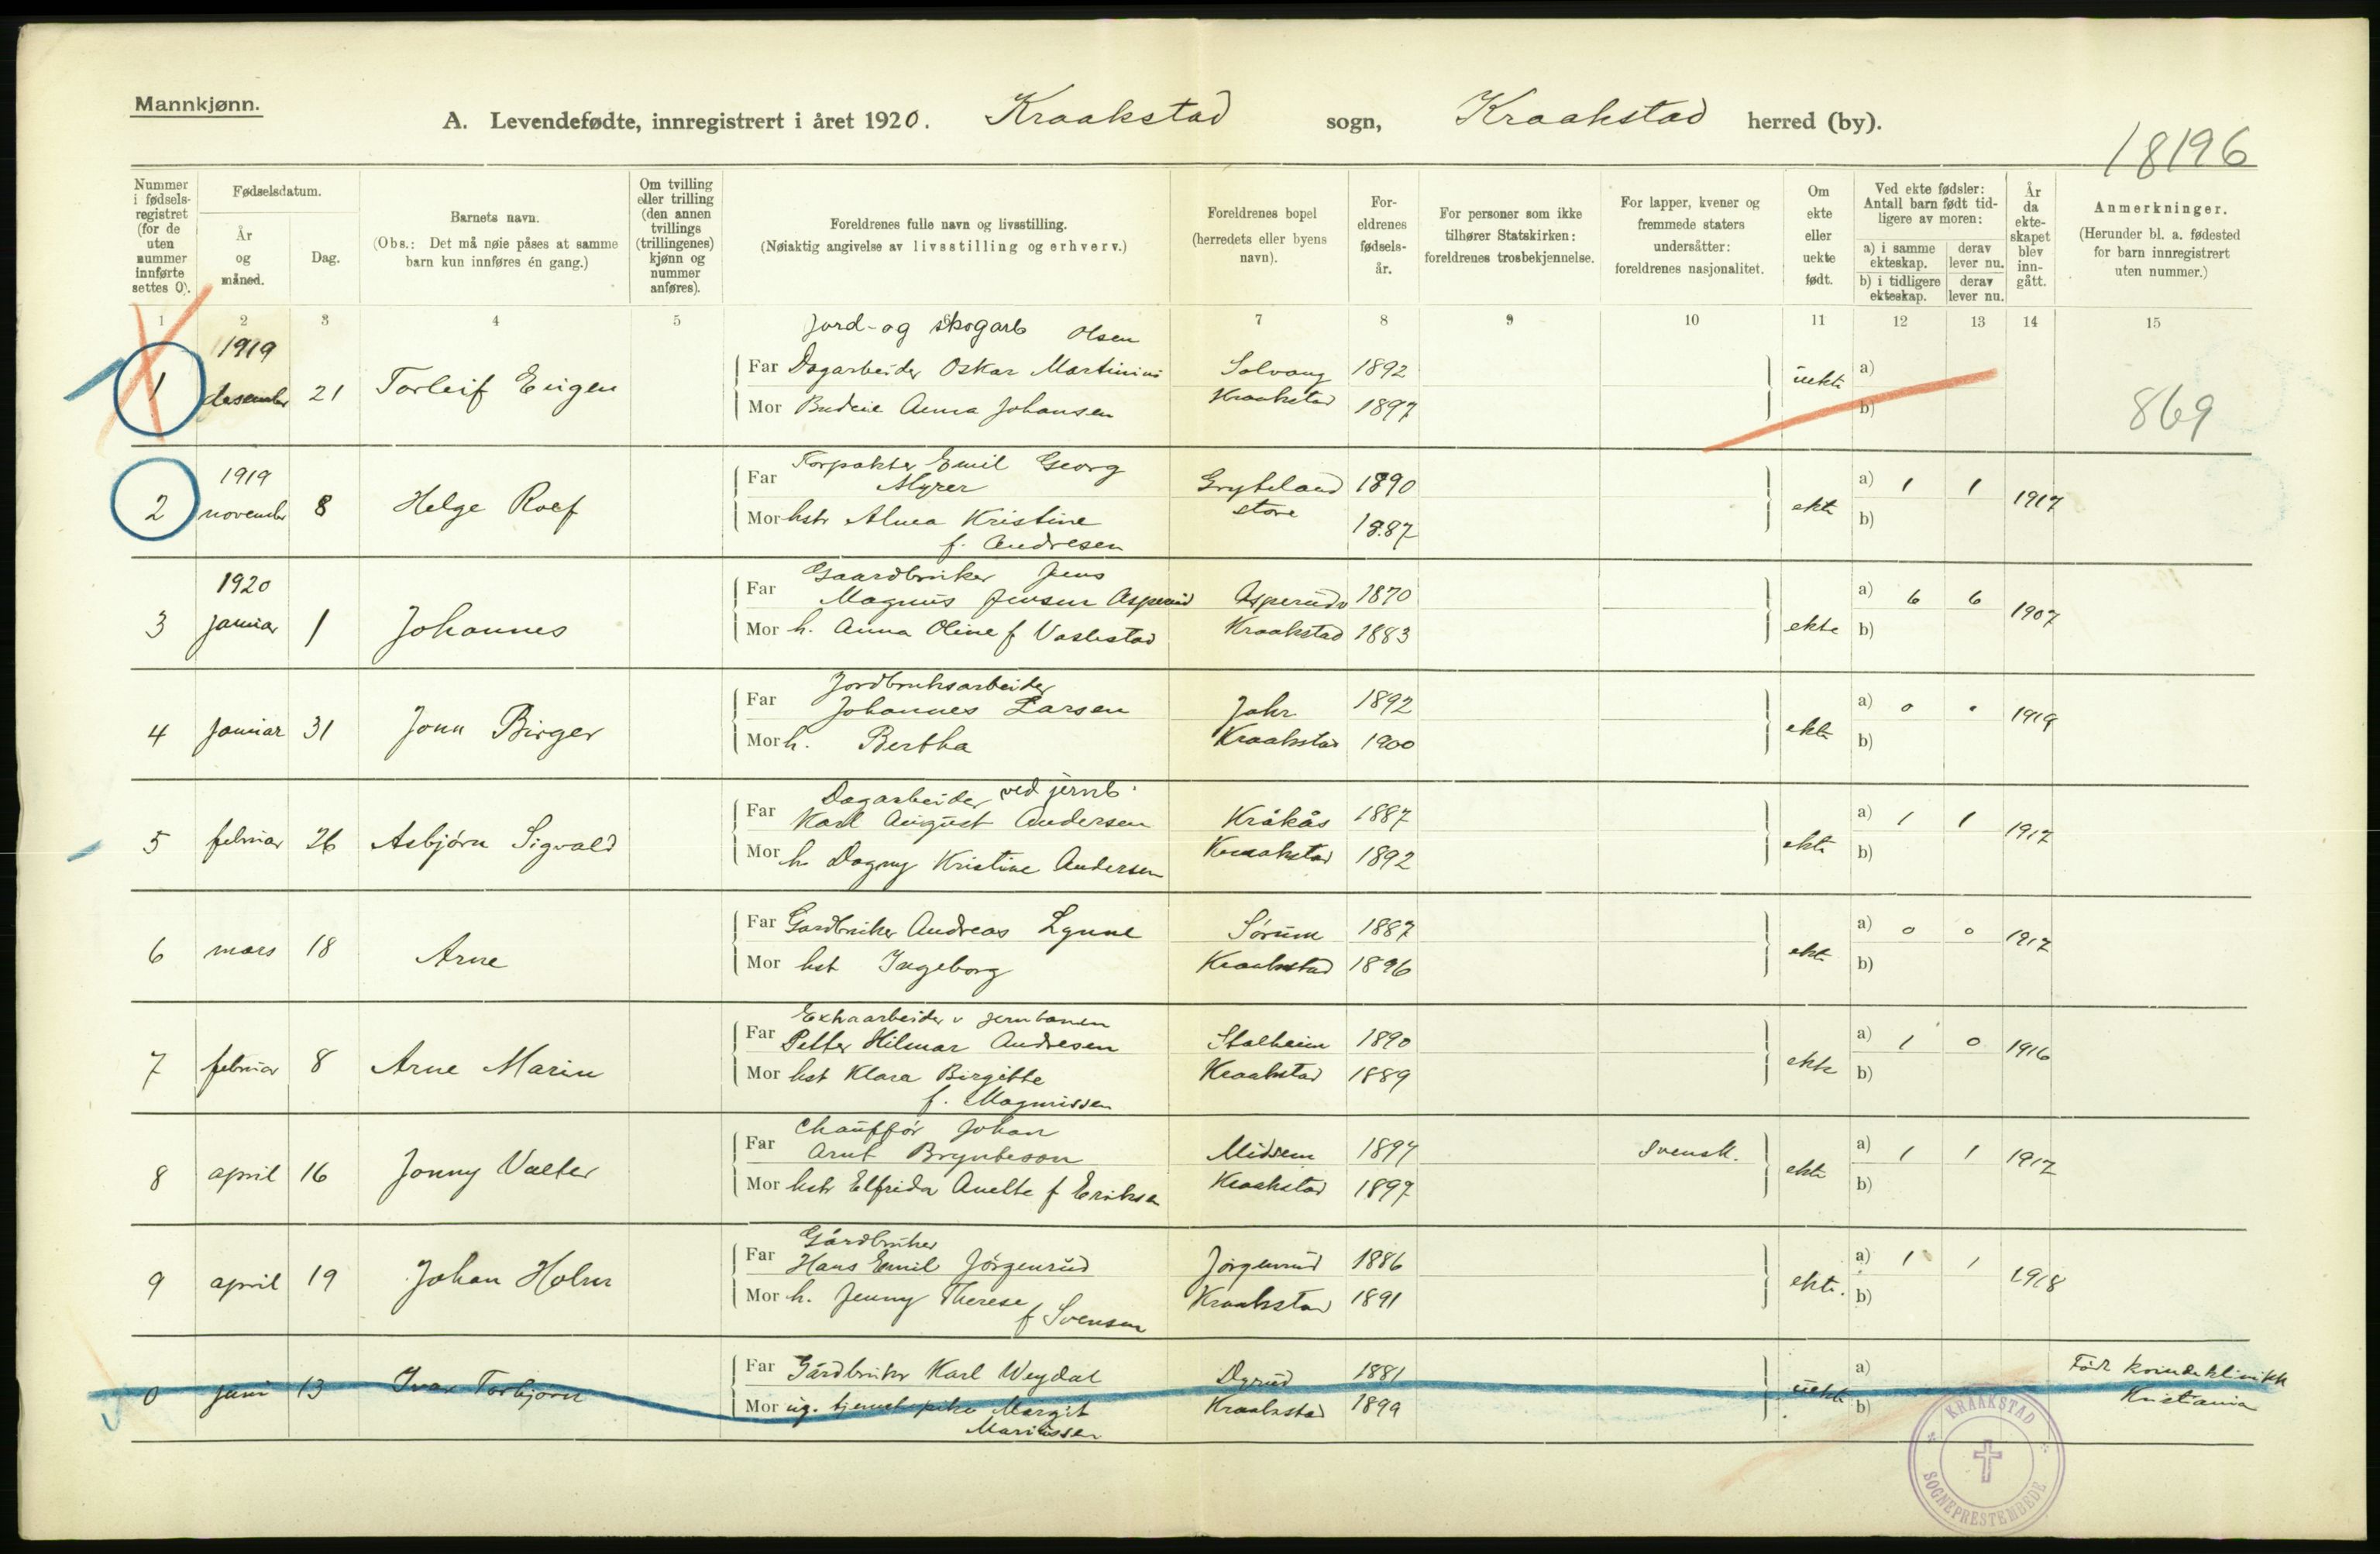 Mannkjønn.
A. Levendefødte, innregistrert i året 1920. Kraakstad sogn, Kraakstad herred (by).
18196
Nummer i fødsels-registret (for de uten nummer innførte settes 0).
Fødselsdatum.
År og måned.
Dag.
Barnets navn.
(Obs.: Det må nøie påses at samme barn kun innføres én gang.)
Om tvilling eller trilling (den annen tvillings (trillingenes) kjønn og nummer anføres).
Foreldrenes fulle navn og livsstilling.
(Nøiaktig angivelse av livsstilling og erhverv.)
Foreldrenes bopel (herredets eller byens navn).
For-eldrenes fødsels-år.
For personer som ikke tilhører Statskirken: foreldrenes trosbekjennelse.
For lapper, kvener og fremmede staters undersåtter: foreldrenes nasjonalitet.
Om ekte eller uekte født.
Ved ekte fødsler: Antall barn født tid-ligere av moren:
a) i samme ekteskap.
derav lever nu.
b) i tidligere ekteskap.
derav lever nu.
År da ekte-skapet blev inn-gått.
Anmerkninger.
(Herunder bl. a. fødested for barn innregistrert uten nummer.)
1 2 3 4 5 7 8 9 10 11 12 13 14 15
Jord- og skogarb Olsen
1919
1 desember 21 Torleif Eugen
Far Dagarbeider Oskar Martinius Solvang 1892 uekte a)
Mor Budeie Anna Johansen Kraakstad 1897 b)
869
Forpakter Emil Georg
1919
2 november 8 Helge Rolf
Far Myrer Gryteland 1890 ekte a) 1 1 1917
Mor hstr Alma Kristine store 1887 b)
f. Andresen
Gaardbruker Jens
1920
3 januar 1 Johannes
Far Magnus Jensen Asperud Asperud 1870 ekte a) 6 6 1907
Mor h. Anna Oline f Kraakstad 1883 b)
Jordbruksarbeider
4 januar 31 Jonn Birger
Far Johannes Larsen Jahr 1892 ekte a) 0 1919
Mor h. Bertha Kraakstad 1900 b)
Dagarbeider ved jernb.
5 februar 26 Asbjørn Sigvald
Far Karl August Andersen Kråkås 1887 ekte a) 1 1 1917
Mor h Dagny Kristine Andersen Kraakstad 1892 b)
6 mars 18 Arne
Far Gardbruker Andreas Lynne Sørum 1887 ekte a) 0 0 1917
Mor hst Ingeborg Kraakstad 1896 b)
Extraarbeider v jernbanen
7 februar 8 Arne Marin
Far Petter Hilmar Andresen Stalheim 1890 ekte a) 1 0 1916
Mor hst Klara Birgitte Kraakstad 1889 b)
f. Magnussen
Chauffør Johan
8 april 16 Jonny Valter
Far Arnt Brynteson Midsem 1894 svensk. ekte a) 1 1 1917
Mor hstr Elfrida Anette f Eriksen Kraakstad 1897 b)
Gårdbruker
9 april 19 Johan Holm
Far Hans Emil Jørgenrud Jørgenrud 1886 ekte. a) 1 1 1918
Mor h. Jenny Therese Kraakstad 1891 b)
f Svensen
0 juni 13 Ivar Torbjørn
Far Gårdbruker Karl Weydal Dyrud 1881 uekte a) Født kvindeklinikk
Mor ug. tjenestepike Margit Kraakstad 1899 b) Kristiania
KRAAKSTAD SOGNEPRESTEMBEDE